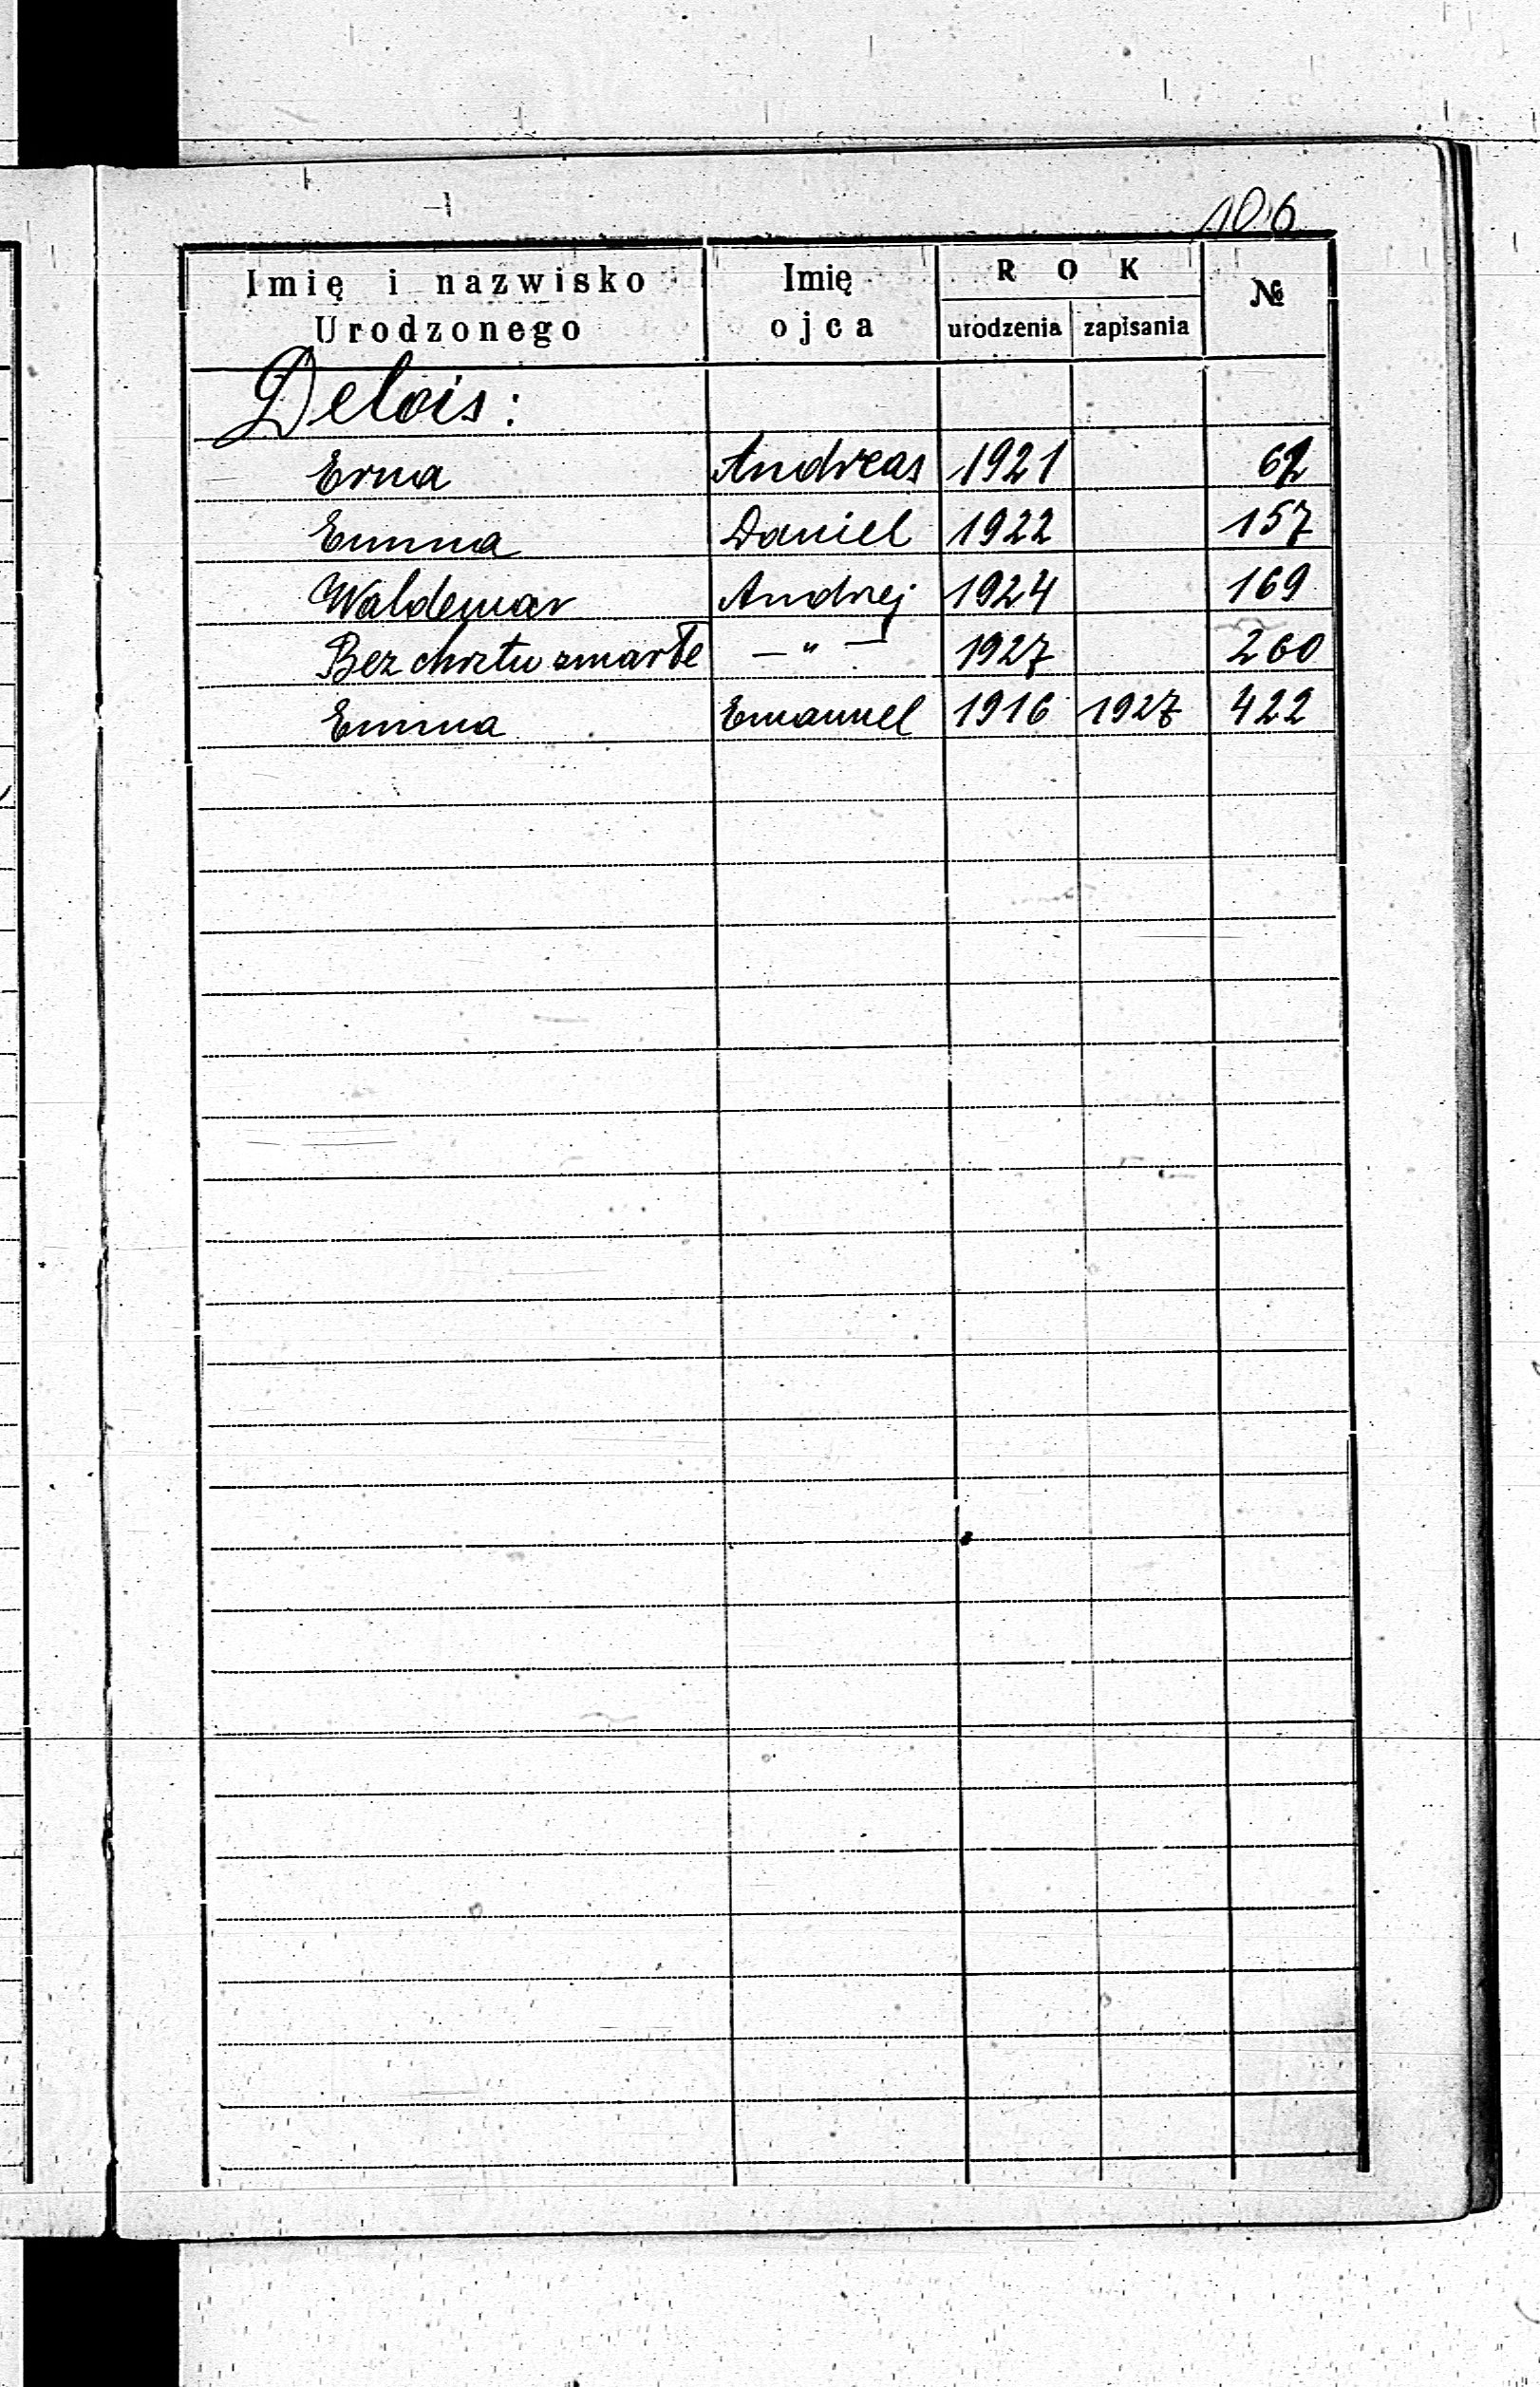 106
Imię i nazwisko Urodzonego Imię ojca ROK urodzenia zapisania №
Delois:
Erna Andreas 1921
Emma Daniel 1922 157
Waldemar Andrzej 1924 169
Bez chrztu zmarłe — " — 1927 260
Emma Emanuel 1916 1927 422